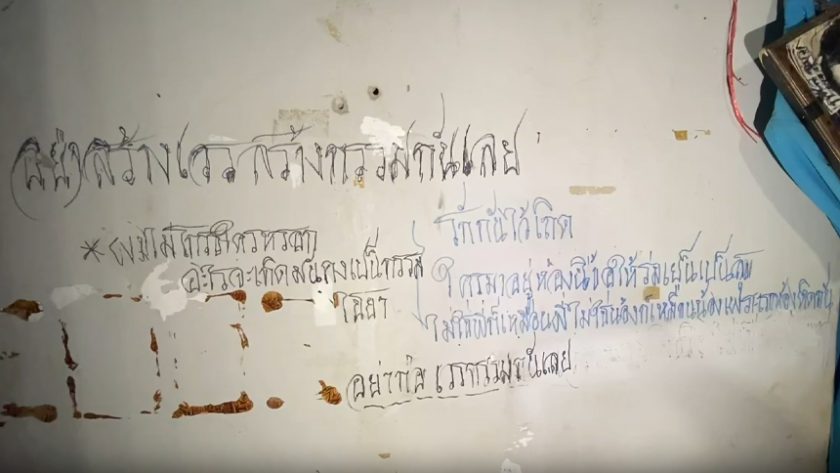 (อย่า)สร้างเวรสร้างกรรมกันเลย
* ผมไม่โกรธใครหรอก
อะไรจะเกิดมันคงเป็นกรรม
โกกันไว้เถิด
ใครมาอยู่ห้องนี้ขอให้ร่มเย็นเป็นสุข
ไม่ใช่พี่ก็เหมือนพี่ไม่ใช่น้องก็เหมือนน้อง
อย่าก่อเวรกรรมกันเลย